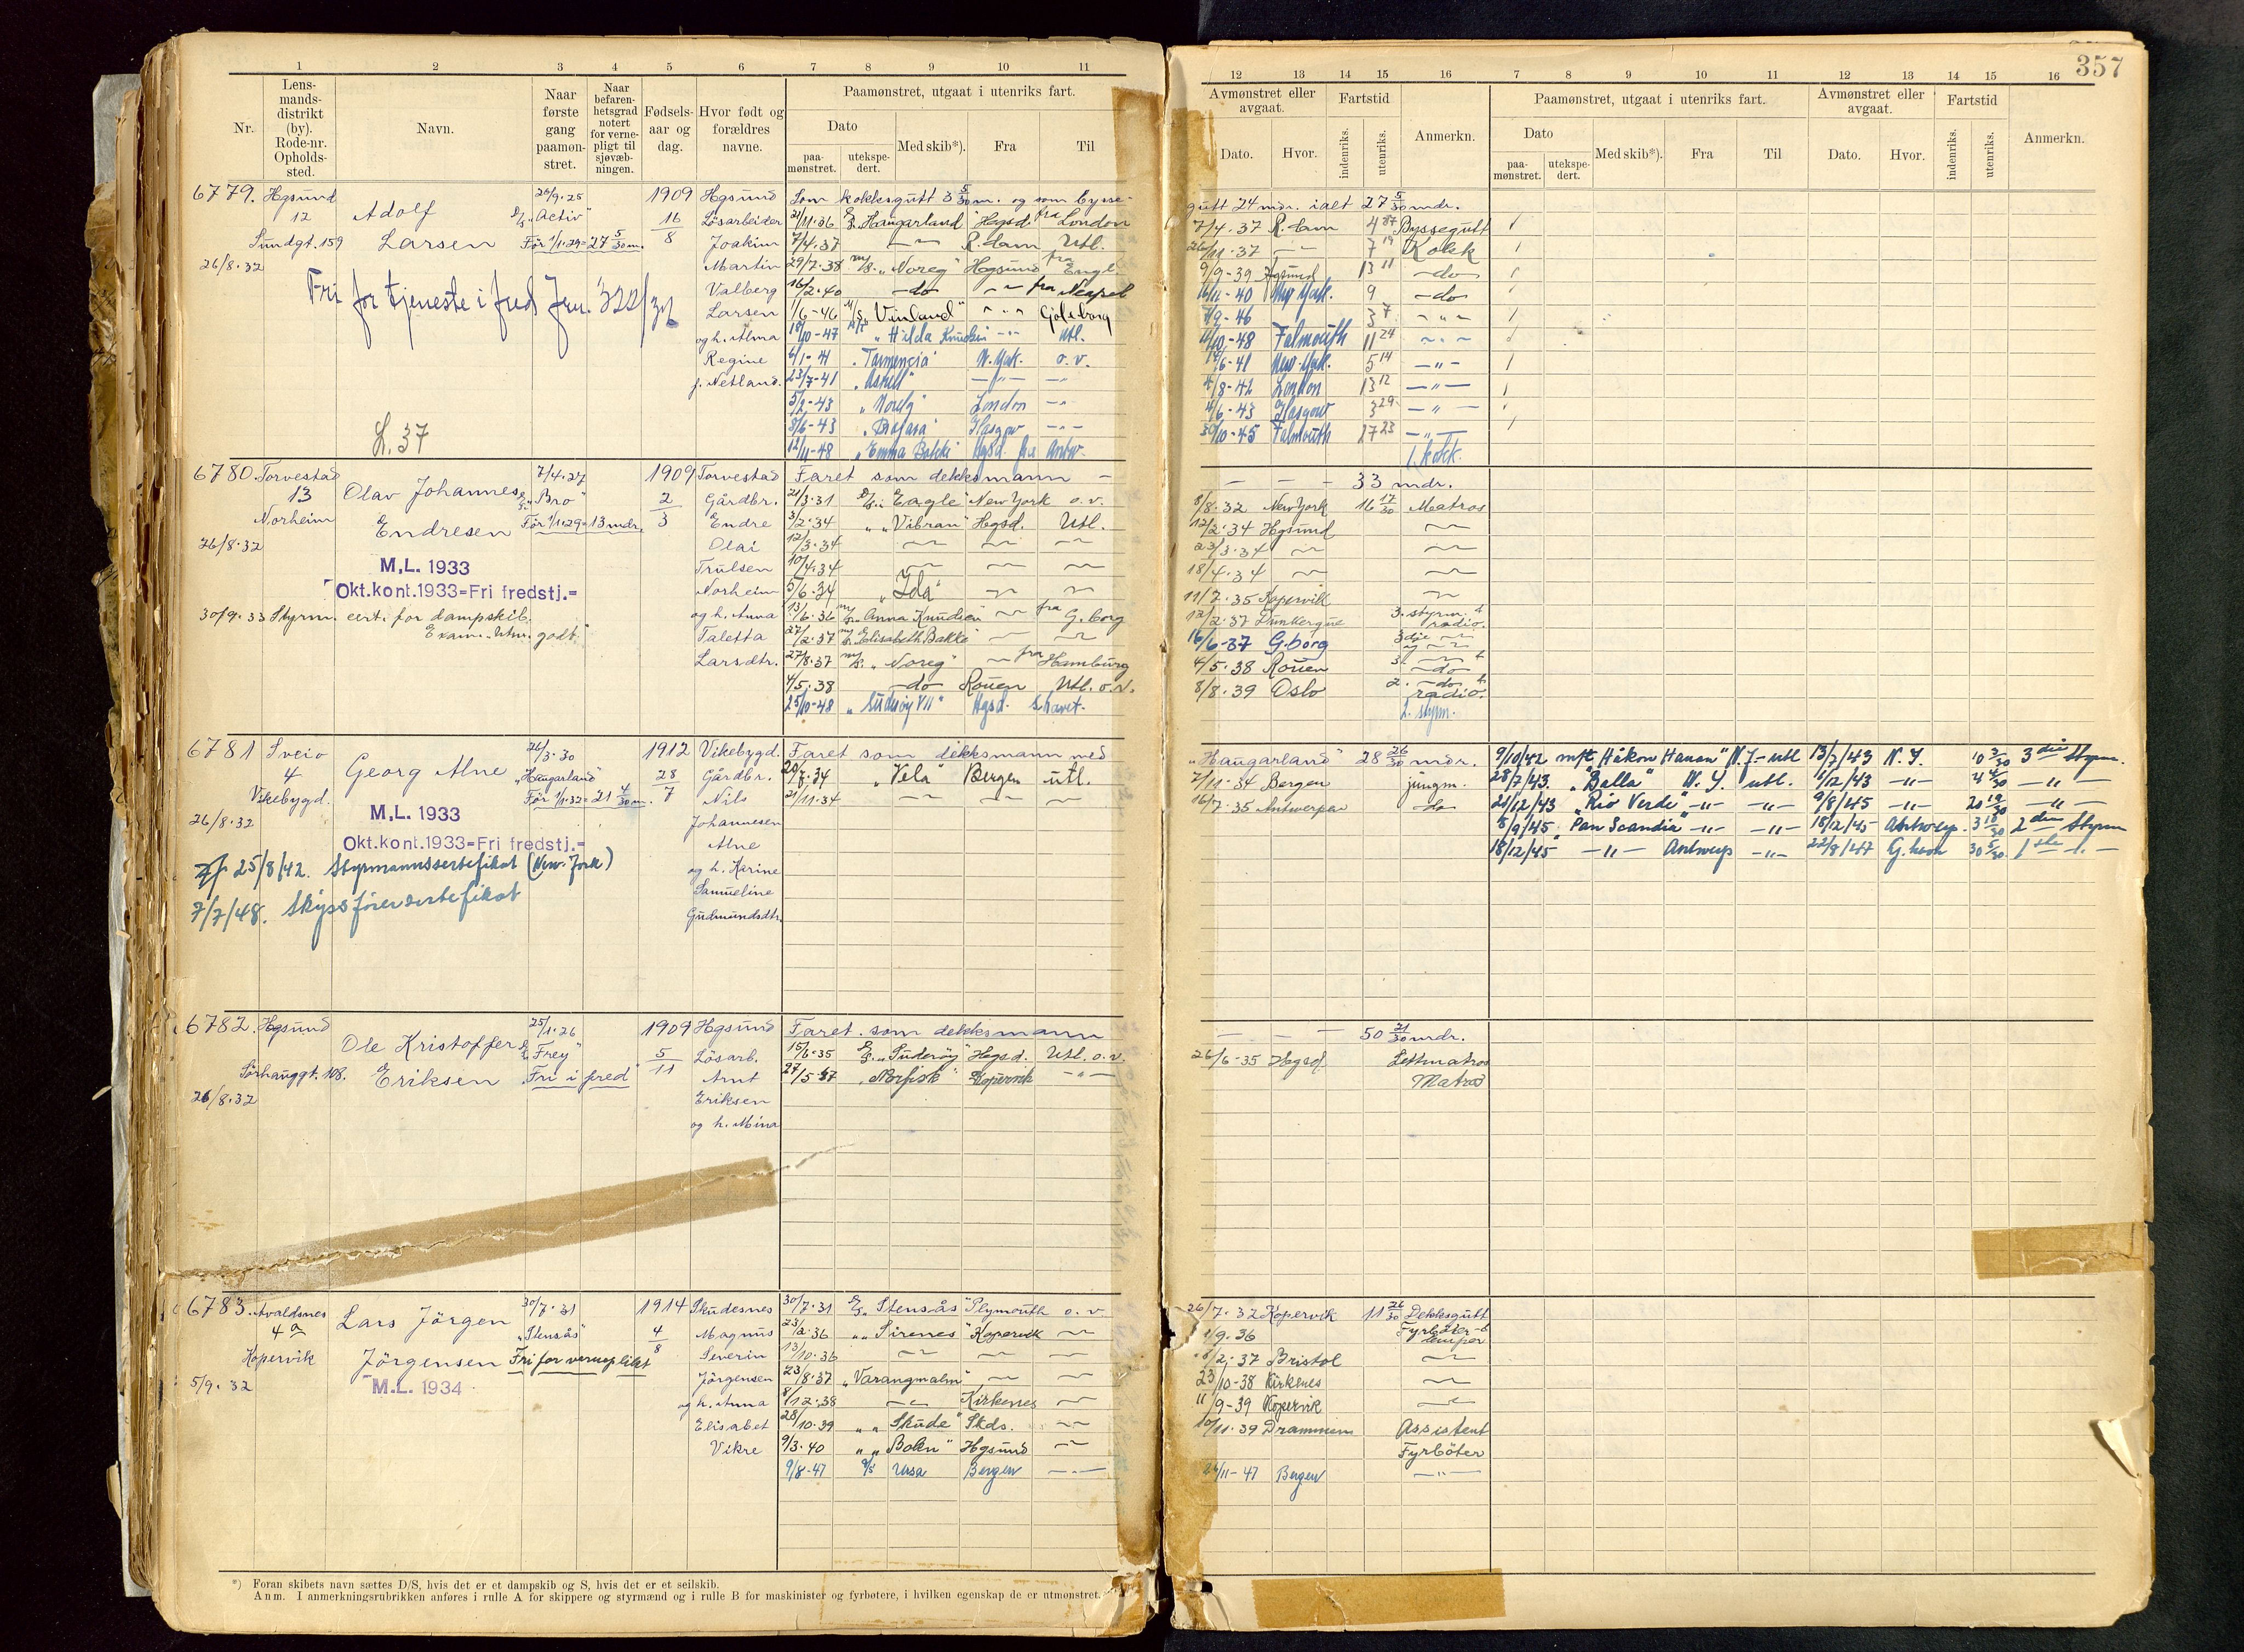 357
1 2 3 4 5 6 7 8 9 10 11
Nr.
Lens-
mands-
distrikt
(by).
Rode-nr.
Opholds-
sted.
Navn.
Naar
første
gang
paamøn-
stret.
Naar
befaren-
hetsgrad
notert
for verne-
pligt til
sjøvæb-
ningen.
Fødsels-
aar og
dag.
Hvor født og
forældres
navne.
Paamønstret, utgaat i utenriks fart.
Dato
paa-
mønstret.
utekspe-
dert.
Med skib*).
Fra
Til
12 13 14 15 16 7 8 9 10 11 12 13 14 15 16
Avmønstret eller
avgaat.
Fartstid
Dato.
Hvor.
indenriks.
utenriks.
Anmerkn.
Paamønstret, utgaat i utenriks fart.
Dato
paa-
mønstret.
utekspe-
dert.
Med skib*).
Fra
Til
Avmønstret eller
avgaat.
Fartstid
Dato.
Hvor.
indenriks.
utenriks.
Anmerkn.
6779. Hgsund
12
Sundgt. 159
26/8.32
Adolf
Larsen
"Activ"
Før 1/1.29=27 5/30 m.
Fri for tjeneste i fred
L. 37
1909
16
8
Hgsund
Løsarbeider
Joakim
Martin
Valberg
Larsen
og h. Alma
Regine
f. Netland.
Som kokksgutt 3 5/30 m. og som bysse-
21/11.36 D/S. "Haugarland" Hgsd. fra London
7/4.37 R.dam Utl.
29/7.38 M/S. "Noreg" Hgsund fra Engl.
16/2.40 do fra Neapel
1/6-46 M/S "Vinland" Gøteborg
18/10-47 "Hilda Knudsen" Utl.
6/1-41 N.York. o.v.
23/7-41
5/2-43 "Noreg" London
8/6-43 Glasgow
12/11-48 "Emma Bakke" Hgsd. fra Antw.
gutt 24 mdr. ialt 27 5/30 mdr.
7/4.37 R.dam 4 Byssegutt
11.37 7 19 Kokk
9/9-39 Hgsund 13 11 do
16/11-40 New York. 9 do
9-46 3 7
10-48 Falmouth 11 24
6-41 New York. 5 14
8-42 London 13 12
6-43 Glasgow 3 29
30/10-45 Falmouth 27 23
1. kokk.
6780. Torvestad
13
Norheim
26/8.32
Olav Johannes
Endresen
7/4.27
D/S. "Bro"
Før 1/1.29=13 mdr.
M.L. 1933
Okt.kont.1933=Fri fredstj.=
30/9.33 Styrm. cert. for dampskib.
Exam. "Utm. godt."
1909
2
3
Torvestad
Gårdbr.
Endre
Olai
Trulsen
Norheim
og h. Anna
Taletta
Larsdtr.
Faret som dekksmann
21/3.31 D/S. "Eagle" New York o.v.
3/2.34 "Vibran" Hgsd. Utl.
12/3.34
10/4.34
5/6.34 "Ida"
13/6.36 M/S. "Anna Knudsen" fra G.borg
27/2.37 M/S. "Elisabeth Bakke"
27/8.37 M/S. "Noreg" fra Hamburg
4/5.38 do Rouen Utl. o.v.
25/10-48 "Suderøy VII" Hgsd.
33 mdr.
8/8.32 New York 16 17/30 Matros
12/2.34 Hgsund
23/3.34
18/4.34
11/7.35 Kopervik
12/2.37 Dunkerque 3. styrm. &
radio.
16/6-37 G.borg 3die
4/5.38 Rouen 3. do
8/8.39 Oslo 2. do &
radio.
2. styrm.
6781 Sveio
4
Vikebygd.
26/8.32
Georg Alne
26/3.30
"Haugarland"
Før 1/1.32=21 4/30 m.
M.L. 1933
Okt.kont.1933=Fri fredstj.=
25/8/42. Styrmannssertefikat (New York)
7/7/48. Skipsførersertefikat
1912
28
7
Vikebygd.
Gårdbr.
Nils
Johannesen
Alne
og h. Karine
Samueline
Gudmundsdtr.
Faret som dekksmann med
20/7.34 "Vela" Bergen utl.
21/11.34
"Haugarland" 28 26/30 mdr.
7/11-34 Bergen jungm.
16/7.35 Antwerpen do
9/10/42 m/t "Håkon Hauan" N.Y-utl 13/7/43 N.Y. 10 3/30 3die Styrm.
28/7/43. "Balla" N.Y. utl. 1/12/43 4 4/30
21/12/43 "Rio Verde" 9/8/45 20 19/30
8/9/45 "Pan Scandia" 18/12/45 Antwerp. 3 10/30 2den Styrm
18/12/45 Antwerp 22/8/47 30 5/30 1ste
6782. Hgsund
Sørhauggt. 108.
26/8.32
Ole Kristoffer
Eriksen
25/1.26
D/S. "Frey"
"Fri i fred"
1909
5
11
Hgsund
Løsarb.
Arnt
Eriksen
og h. Mina
Faret som dekksmann
15/6.35 D/S. "Suderøy" Hgsd. Utl. o.v.
27/5-37 "Norfisk" Kopervik
50 21/30 mdr.
26/6-35 Hgsd. Lettmatros
Matros
6783. Avaldsnes
4a
Kopervik
5/9.32
Lars Jörgen
Jörgensen
30/7.31
"Stensås"
Fri for verneplikt
M.L. 1934
1914
4
8
Skudesnes
Magnus
Severin
Jörgensen
og h. Anna
Elisabet
Vikre
30/7.31 D/S. "Stensås" Plymouth o.v.
23/2.36 "Sirenes" Kopervik
13/10.36
23/8.37 "Varangmalm"
8/12.38 Kirkenes
28/10.39 "Skude" Skds.
9/3.40 "Bokn" Hgsund
9/8-47 D/S Ursa Bergen
26/7.32 Kopervik 11 26/30 Dekksgutt
1/9.36 Fyrböter-&
lemper
8/2.37 Bristol
23/10-38 Kirkenes
11/9-39 Kopervik
10/11.39 Drammen Assistent
Fyrböter
11-47 Bergen
*) Foran skibets navn sættes D/S, hvis det er et dampskib og S, hvis det er et seilskib.
Anm. I anmerkningsrubrikken anføres i rulle A for skippere og styrmænd og i rulle B for maskinister og fyrbøtere, i hvilken egenskap de er utmønstret.